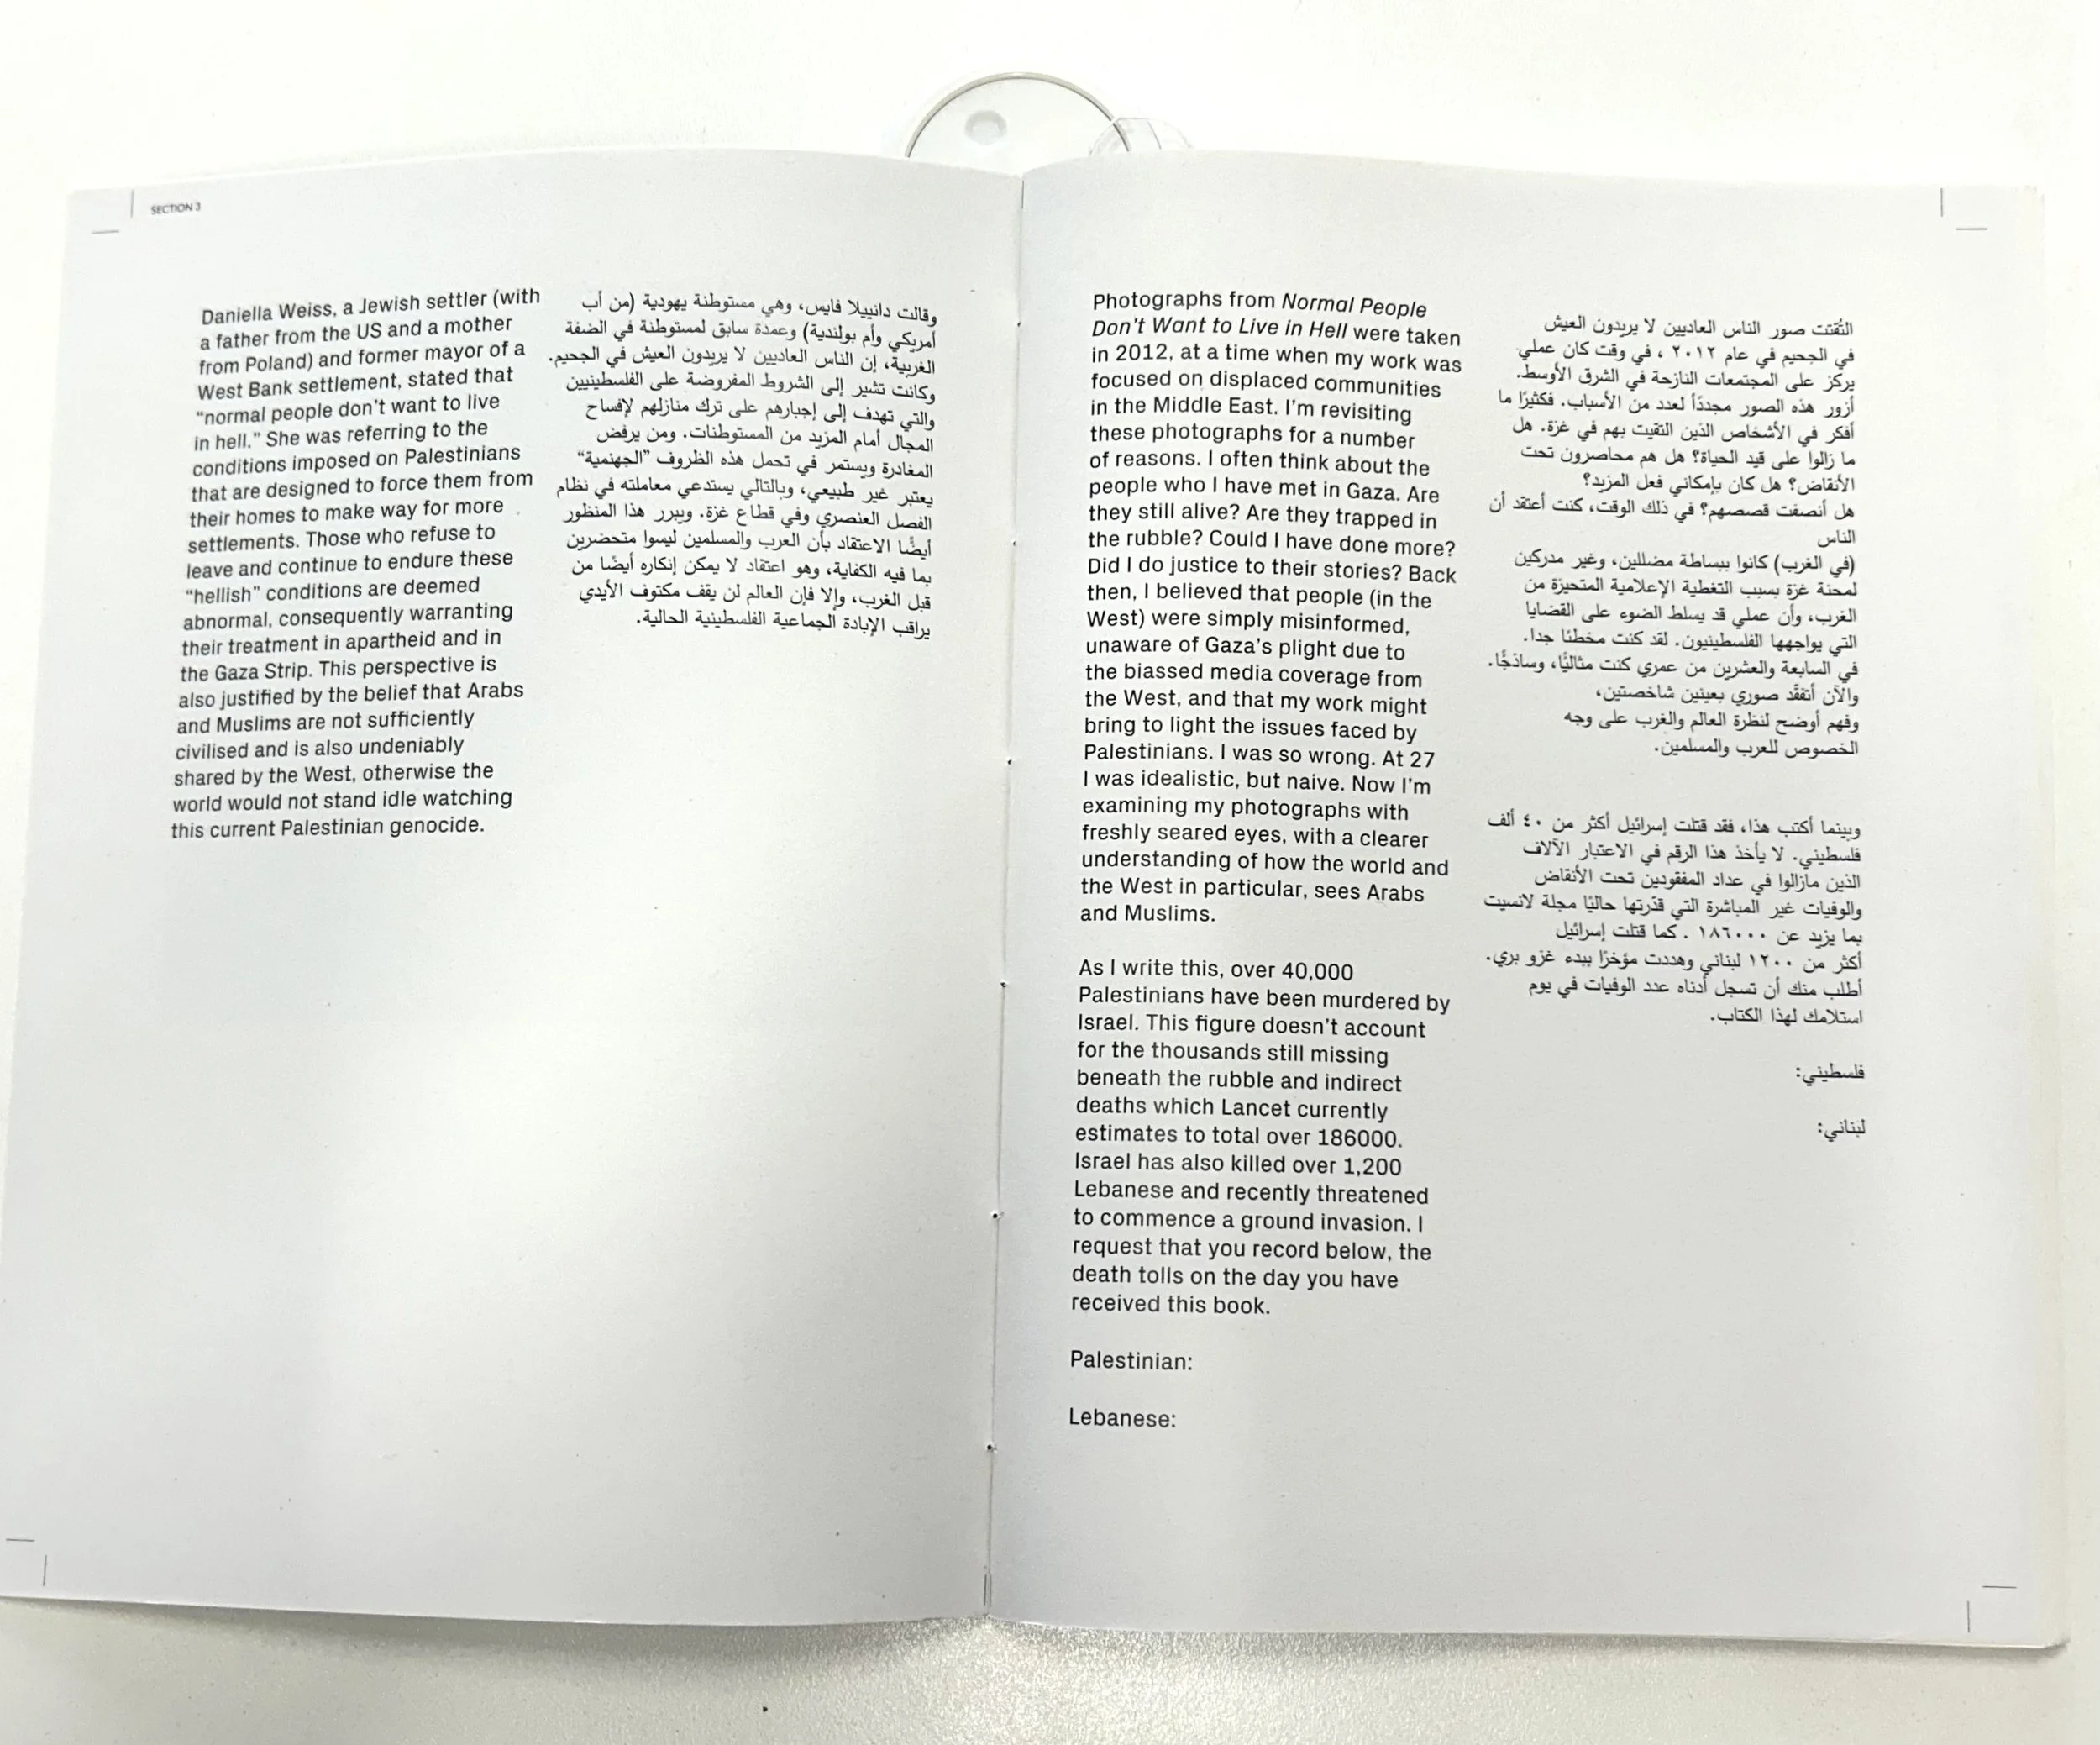 SECTION 3
Daniella Weiss, a Jewish settler (with
a father from the US and a mother
from Poland) and former mayor of a
West Bank settlement, stated that
“normal people don’t want to live
in hell.” She was referring to the
conditions imposed on Palestinians
that are designed to force them from
their homes to make way for more
settlements. Those who refuse to
leave and continue to endure these
“hellish” conditions are deemed
abnormal, consequently warranting
their treatment in apartheid and in
the Gaza Strip. This perspective is
also justified by the belief that Arabs
and Muslims are not sufficiently
civilised and is also undeniably
shared by the West, otherwise the
world would not stand idle watching
this current Palestinian genocide.
وقالت دانييلا فايس، وهي مستوطنة يهودية (من أب
أمريكي وأم بولندية) وعمدة سابق لمستوطنة في الضفة
الغربية، إن الناس العاديين لا يريدون العيش في الجحيم.
وكانت تشير إلى الشروط المفروضة على الفلسطينيين
والتي تهدف إلى إجبارهم على ترك منازلهم لإفساح
المجال أمام المزيد من المستوطنات. ومن يرفض
المغادرة ويستمر في تحمل هذه الظروف “الجهنمية“
يعتبر غير طبيعي، وبالتالي يستدعي معاملته في نظام
الفصل العنصري وفي قطاع غزة. ويبرر هذا المنظور
أيضًا الاعتقاد بأن العرب والمسلمين ليسوا متحضرين
بما فيه الكفاية، وهو اعتقاد لا يمكن إنكاره أيضًا من
قبل الغرب، وإلا فإن العالم لن يقف مكتوف الأيدي
يراقب الإبادة الجماعية الفلسطينية الحالية.
Photographs from Normal People
Don’t Want to Live in Hell were taken
in 2012, at a time when my work was
focused on displaced communities
in the Middle East. I’m revisiting
these photographs for a number
of reasons. I often think about the
people who I have met in Gaza. Are
they still alive? Are they trapped in
the rubble? Could I have done more?
Did I do justice to their stories? Back
then, I believed that people (in the
West) were simply misinformed,
unaware of Gaza’s plight due to
the biassed media coverage from
the West, and that my work might
bring to light the issues faced by
Palestinians. I was so wrong. At 27
I was idealistic, but naive. Now I’m
examining my photographs with
freshly seared eyes, with a clearer
understanding of how the world and
the West in particular, sees Arabs
and Muslims.
As I write this, over 40,000
Palestinians have been murdered by
Israel. This figure doesn’t account
for the thousands still missing
beneath the rubble and indirect
deaths which Lancet currently
estimates to total over 186000.
Israel has also killed over 1,200
Lebanese and recently threatened
to commence a ground invasion. I
request that you record below, the
death tolls on the day you have
received this book.
Palestinian:
Lebanese:
التُقتت صور الناس العاديين لا يريدون العيش
في الجحيم في عام ٢٠١٢ ، في وقت كان عملي
يركز على المجتمعات النازحة في الشرق الأوسط.
أزور هذه الصور مجدداً لعدد من الأسباب. فكثيرًا ما
أفكر في الأشخاص الذين التقيت بهم في غزة. هل
ما زالوا على قيد الحياة؟ هل هم محاصرون تحت
الأنقاض؟ هل كان بإمكاني فعل المزيد؟
هل أنصفت قصصهم؟ في ذلك الوقت، كنت أعتقد أن
الناس
(في الغرب) كانوا ببساطة مضللين، وغير مدركين
لمحنة غزة بسبب التغطية الإعلامية المتحيزة من
الغرب، وأن عملي قد يسلط الضوء على القضايا
التي يواجهها الفلسطينيون. لقد كنت مخطئا جدا.
في السابعة والعشرين من عمري كنت مثاليًا، وساذجًا.
والآن أتفقّد صوري بعينين شاخصتين،
وفهم أوضح لنظرة العالم والغرب على وجه
الخصوص للعرب والمسلمين.
وبينما أكتب هذا، فقد قتلت إسرائيل أكثر من ٤٠ ألف
فلسطيني. لا يأخذ هذا الرقم في الاعتبار الآلاف
الذين مازالوا في عداد المفقودين تحت الأنقاض
والوفيات غير المباشرة التي قدّرتها حاليًا مجلة لانسيت
بما يزيد عن ١٨٦٠٠٠ . كما قتلت إسرائيل
أكثر من ١٢٠٠ لبناني وهددت مؤخرًا ببدء غزو بري.
أطلب منك أن تسجل أدناه عدد الوفيات في يوم
استلامك لهذا الكتاب.
فلسطيني:
لبناني: